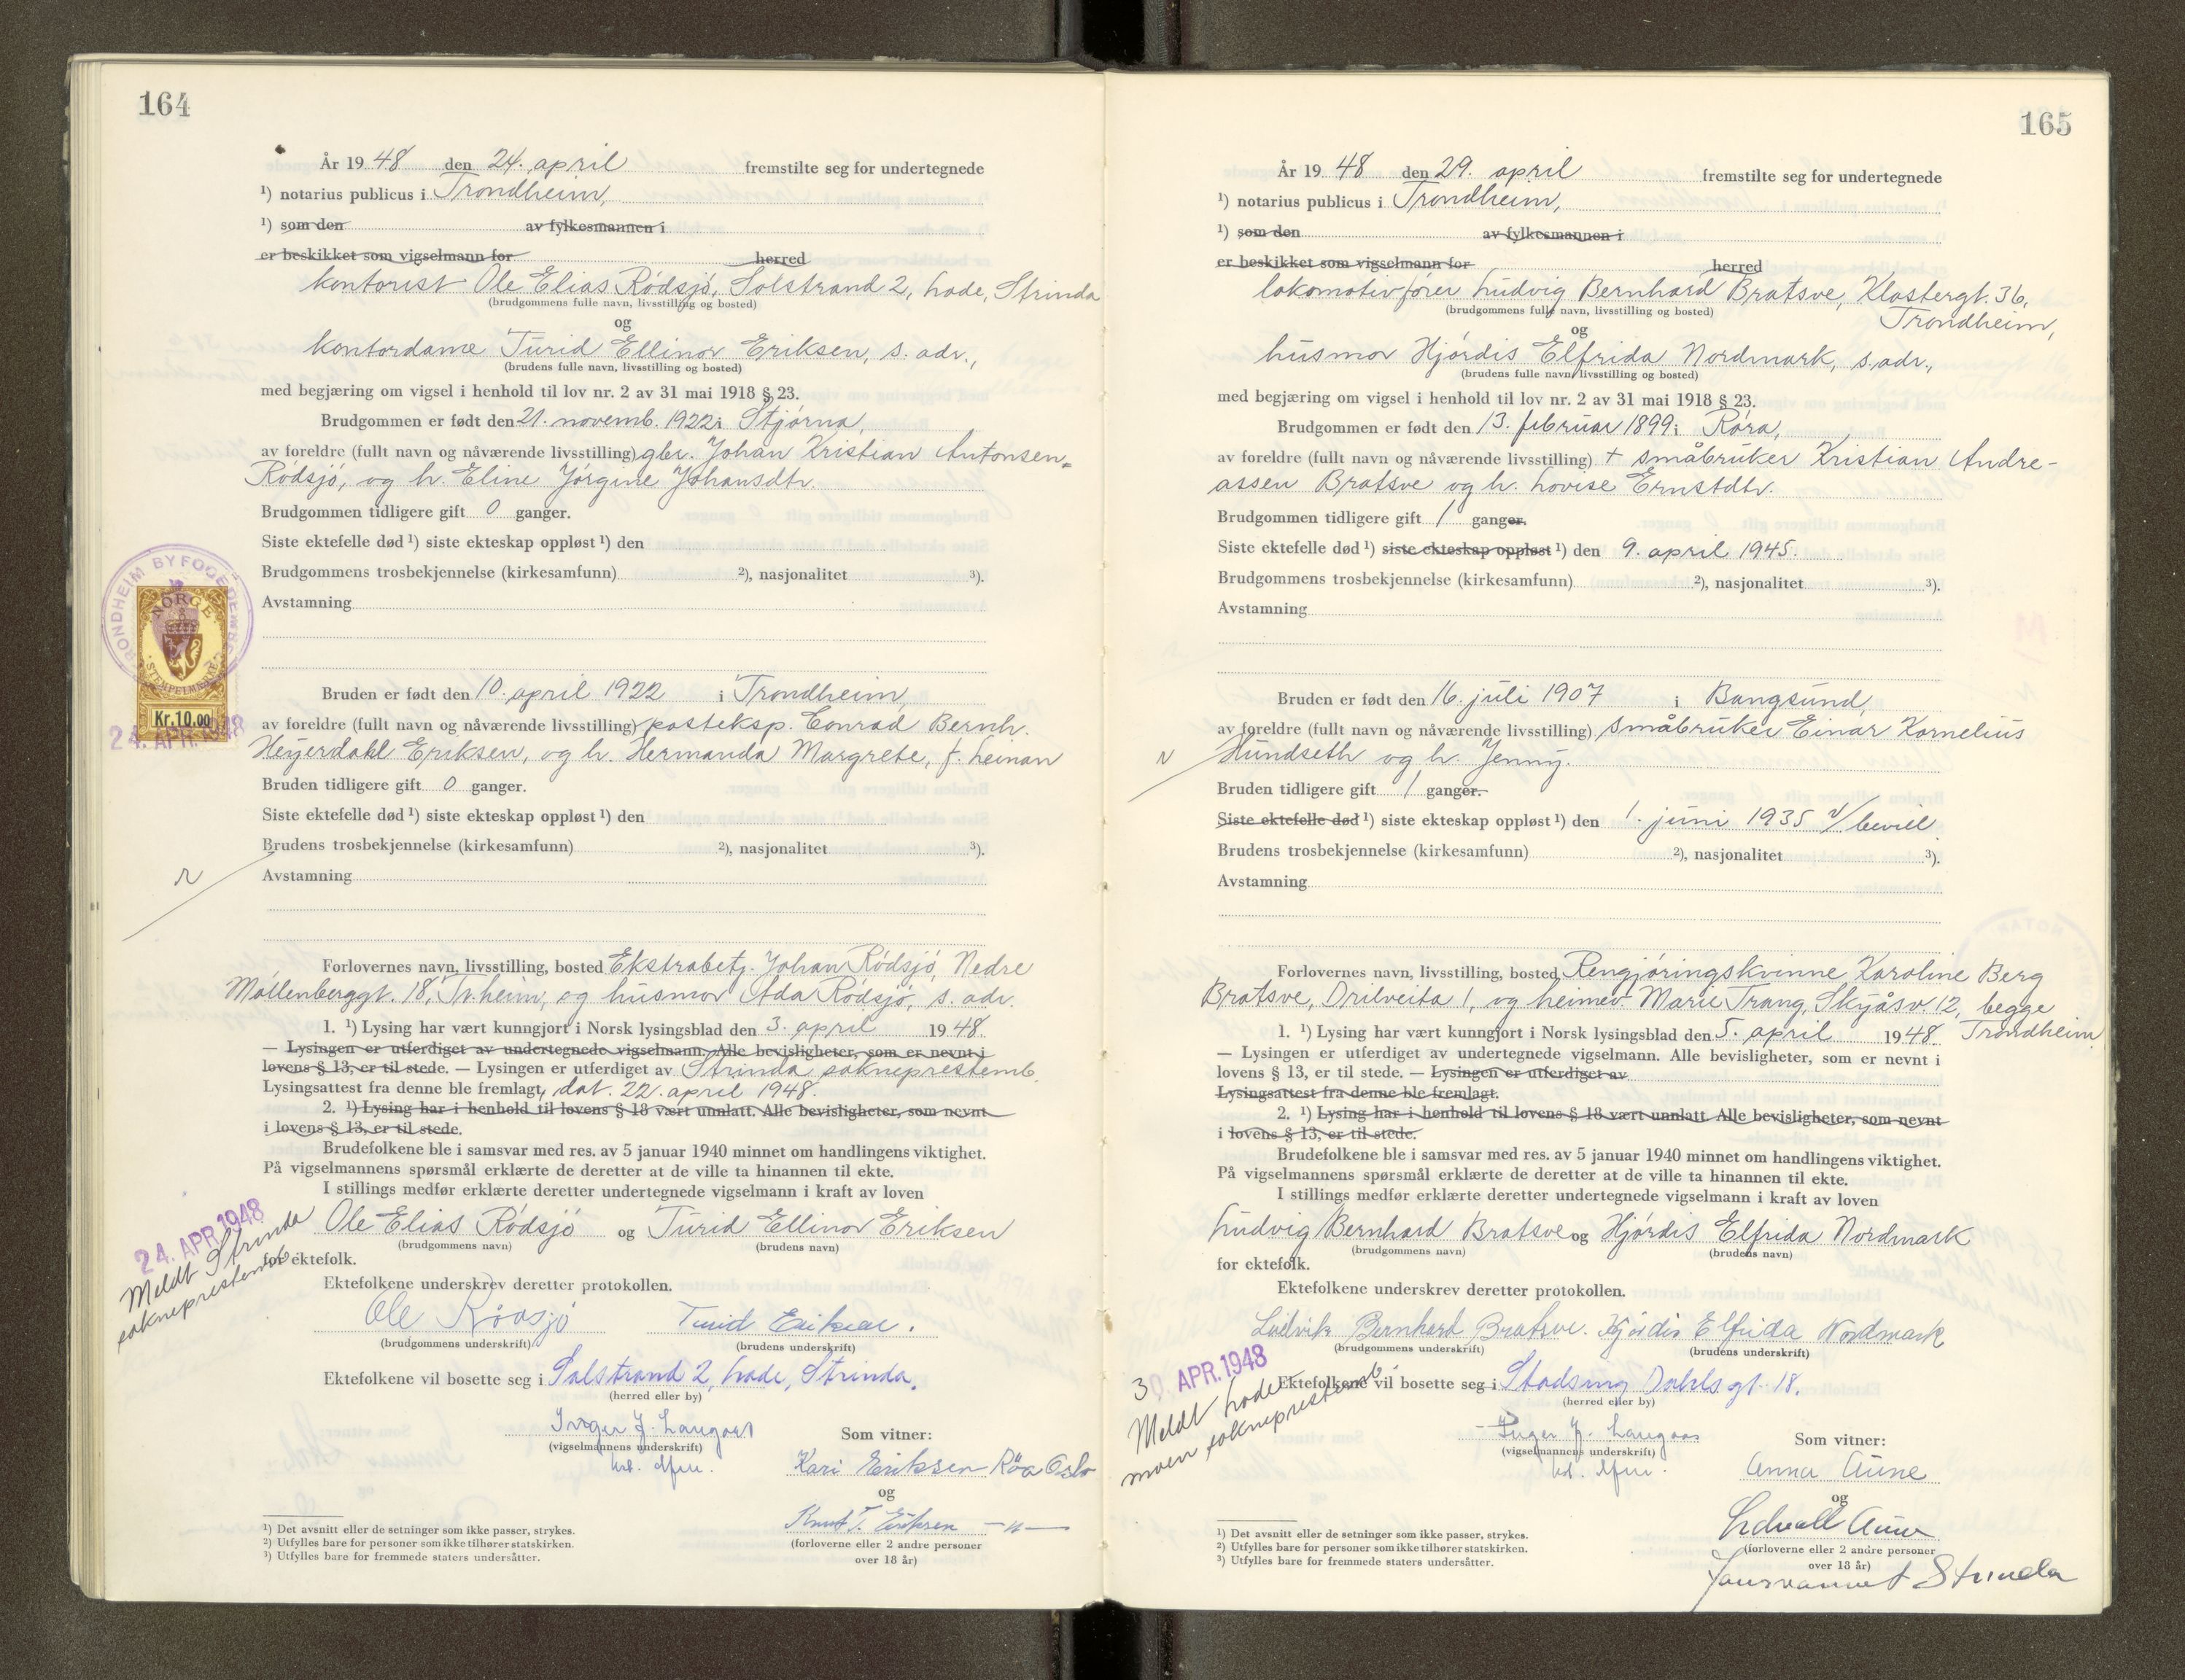 164
År 1948 den 24. april fremstilte seg for undertegnede
¹) notarius publicus i Trondheim,
¹) som den av fylkesmannen i
er beskikket som vigselmann for herred
kontorist Ole Elias Rödsjö, Solstrand 2, Lade, Strinda
(brudgommens fulle navn, livsstilling og bosted)
og
kontordame Turid Ellinor Eriksen, s. adr.,
(brudens fulle navn, livsstilling og bosted)
med begjæring om vigsel i henhold til lov nr. 2 av 31 mai 1918 § 23.
Brudgommen er født den 21. novemb. 1922 i Stjørna,
av foreldre (fullt navn og nåværende livsstilling) gbr. Johan Kristian Antonsen-
Rödsjö, og h. Eline Jörgine Johansdtr.
Brudgommen tidligere gift 0 ganger.
Siste ektefelle død ¹) siste ekteskap oppløst ¹) den
Brudgommens trosbekjennelse (kirkesamfunn) ²), nasjonalitet ³).
Avstamning
TRONDHEIM BYFOGDEMBEDE
NORGE
STEMPELMERKE
Kr.10.00
24. APR. 1948
Bruden er født den 10. april 1922 i Trondheim,
av foreldre (fullt navn og nåværende livsstilling) posteksp. Conrad Bernh.
Heyerdahl Eriksen, og h. Hermanda Margrete, f. Leinan
Bruden tidligere gift 0 ganger.
Siste ektefelle død ¹) siste ekteskap oppløst ¹) den
Brudens trosbekjennelse (kirkesamfunn) ²), nasjonalitet ³).
Avstamning
Forlovernes navn, livsstilling, bosted Ekstrabetj. Johan Rödsjö, Nedre
Möllenberggt. 18, Tr.heim, og husmor Ada Rödsjö, s. adr.
1. ¹) Lysing har vært kunngjort i Norsk lysingsblad den 3. april 1948.
— Lysingen er utferdiget av undertegnede vigselmann. Alle bevisligheter, som er nevnt i
lovens § 13, er til stede. — Lysingen er utferdiget av Strinda sokneprestemb.
Lysingsattest fra denne ble fremlagt, dat. 22. april 1948.
2. ¹) Lysing har i henhold til lovens § 18 vært unnlatt. Alle bevisligheter, som nevnt
i lovens § 13, er til stede.
Brudefolkene ble i samsvar med res. av 5 januar 1940 minnet om handlingens viktighet.
På vigselmannens spørsmål erklærte de deretter at de ville ta hinannen til ekte.
I stillings medfør erklærte deretter undertegnede vigselmann i kraft av loven
Ole Elias Rödsjö og Turid Ellinor Eriksen
(brudgommens navn) (brudens navn)
for ektefolk.
24. APR. 1948
Meldt Strinda
sokneprestemb.
Ektefolkene underskrev deretter protokollen.
Ole Rödsjö Turid Eriksen.
(brudgommens underskrift) (brudens underskrift)
Ektefolkene vil bosette seg i Solstrand 2, Lade, Strinda.
(herred eller by)
Inger J. Langaas
(vigselmannens underskrift)
Som vitner:
Kari Eriksen Röa Oslo
og
Knut T. Eriksen —"—
(forloverne eller 2 andre personer
over 18 år)
¹) Det avsnitt eller de setninger som ikke passer, strykes.
²) Utfylles bare for personer som ikke tilhører statskirken.
³) Utfylles bare for fremmede staters undersåtter.
165
År 1948 den 29. april fremstilte seg for undertegnede
¹) notarius publicus i Trondheim,
¹) som den av fylkesmannen i
er beskikket som vigselmann for herred
lokomotivfører Ludvig Bernhard Bratsve, Klostergt. 36,
(brudgommens fulle navn, livsstilling og bosted)
Trondheim,
og
husmor Hjördis Elfrida Nordmark, s. adr.,
(brudens fulle navn, livsstilling og bosted)
med begjæring om vigsel i henhold til lov nr. 2 av 31 mai 1918 § 23.
Brudgommen er født den 13. februar 1899 i Röra,
av foreldre (fullt navn og nåværende livsstilling) + småbruker Kristian Andre-
assen Bratsve og h. Lovise Ernstdtr.
Brudgommen tidligere gift 1 ganger.
Siste ektefelle død ¹) siste ekteskap oppløst ¹) den 9. april 1945.
Brudgommens trosbekjennelse (kirkesamfunn) ²), nasjonalitet ³).
Avstamning
Bruden er født den 16. juli 1907 i Bangsund,
av foreldre (fullt navn og nåværende livsstilling) småbruker Einar Kornelius
Hundseth og h. Jenny.
Bruden tidligere gift 1 ganger.
Siste ektefelle død ¹) siste ekteskap oppløst ¹) den 1. juni 1935 v/bevill.
Brudens trosbekjennelse (kirkesamfunn) ²), nasjonalitet ³).
Avstamning
Forlovernes navn, livsstilling, bosted Rengjöringskvinne Karoline Berg
Bratsve, Drilveita 1, og heimev. Marie Trang, Skyåsv. 12, begge
1. ¹) Lysing har vært kunngjort i Norsk lysingsblad den 5. april 1948. Trondheim
— Lysingen er utferdiget av undertegnede vigselmann. Alle bevisligheter, som er nevnt i
lovens § 13, er til stede. — Lysingen er utferdiget av
Lysingsattest fra denne ble fremlagt.
2. ¹) Lysing har i henhold til lovens § 18 vært unnlatt. Alle bevisligheter, som nevnt
i lovens § 13, er til stede.
Brudefolkene ble i samsvar med res. av 5 januar 1940 minnet om handlingens viktighet.
På vigselmannens spørsmål erklærte de deretter at de ville ta hinannen til ekte.
I stillings medfør erklærte deretter undertegnede vigselmann i kraft av loven
Ludvig Bernhard Bratsve og Hjördis Elfrida Nordmark
(brudgommens navn) (brudens navn)
for ektefolk.
Ektefolkene underskrev deretter protokollen.
Ludvik Bernhard Bratsve. Hjördis Elfrida Nordmark
(brudgommens underskrift) (brudens underskrift)
30. APR. 1948
Meldt Lade-
moen sokneprestemb.
Ektefolkene vil bosette seg i Stadsing Dahls gt. 18.
(herred eller by)
Inger J. Langaas
(vigselmannens underskrift)
Som vitner:
Anna Aune
og
Aune
(forloverne eller 2 andre personer
over 18 år)
Jonsvannet Strinda
¹) Det avsnitt eller de setninger som ikke passer, strykes.
²) Utfylles bare for personer som ikke tilhører statskirken.
³) Utfylles bare for fremmede staters undersåtter.